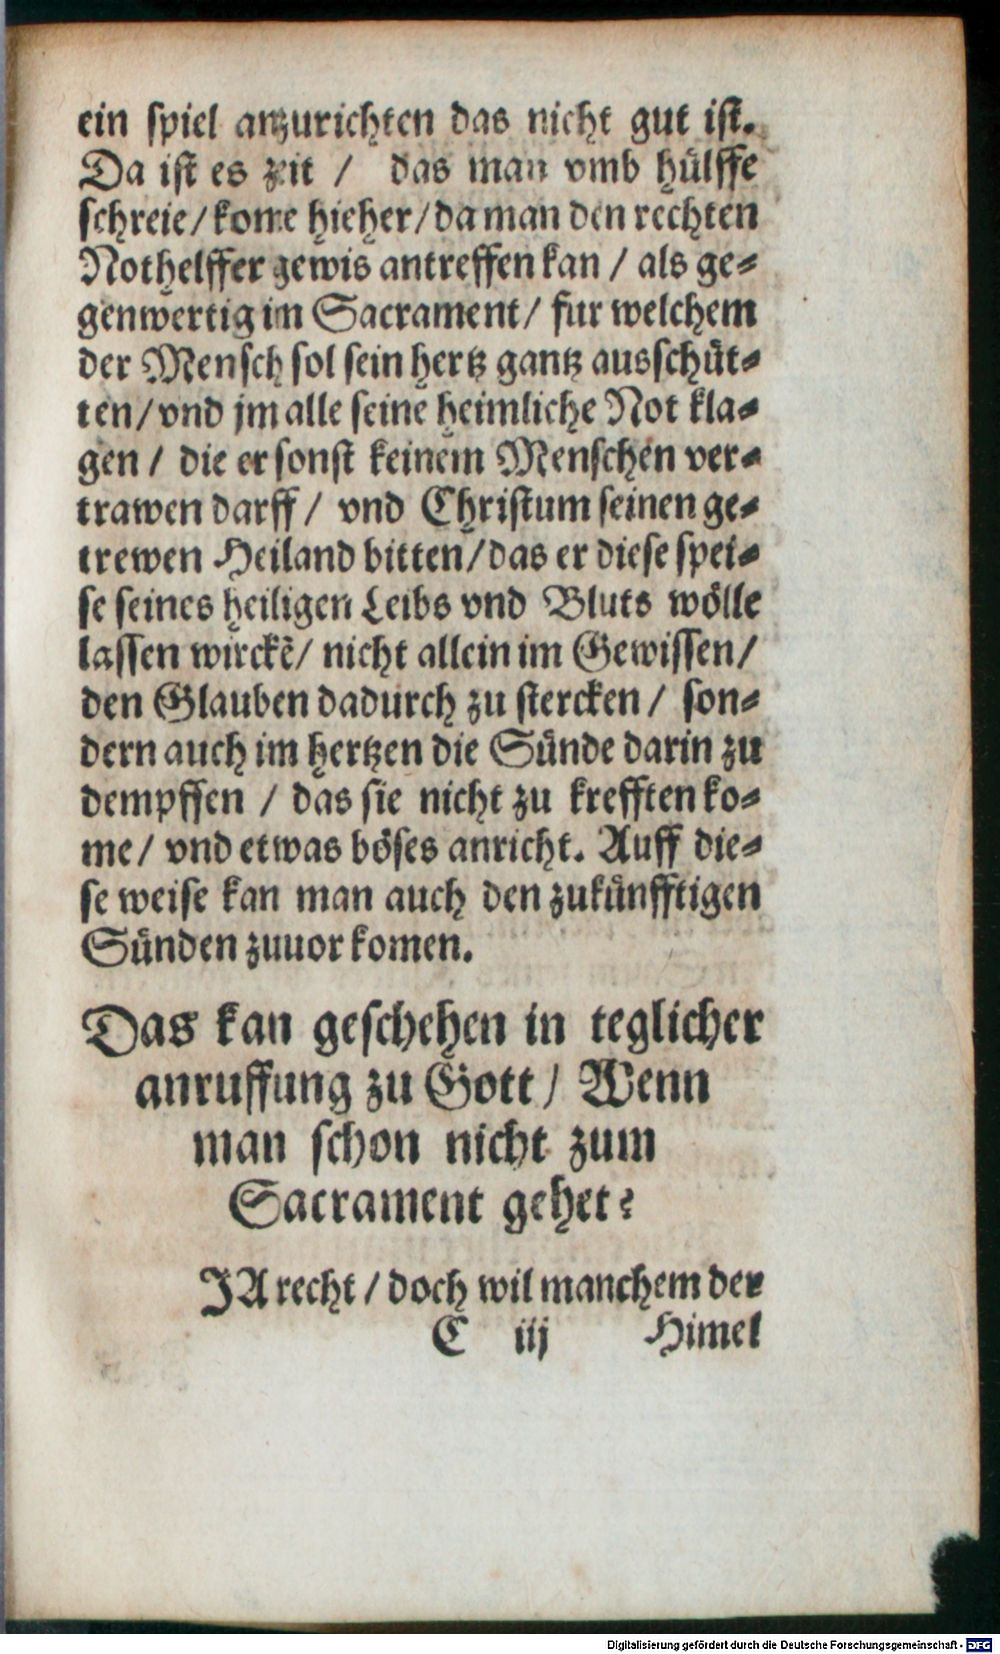 ein spiel anzurichten das nicht gut ist.
Da ist es zeit / das man vmb hülffe
schreie / kome hieher / da man den rechten
Nothelffer gewis antreffen kan / als ge⸗
genwertig im Sacrament / fur welchem
der Mensch sol sein hertz gantz ausschüt⸗
ten / vnd jm alle seine heimliche Not kla⸗
gen / die er sonst keinem Menschen ver⸗
trawen darff / vnd Christum seinen ge⸗
trewen Heiland bitten / das er diese spei⸗
se seines heiligen Leibs vnd Bluts wölle
lassen wirckẽ / nicht allein im Gewissen /
den Glauben dadurch zu stercken / son⸗
dern auch im hertzen die Sünde darin zu
dempffen / das sie nicht zu krefften ko⸗
me / vnd etwas böses anricht. Auff die⸗
se weise kan man auch den zukünfftigen
Sünden zuuor komen.
Das kan geschehen in teglicher
anruffung zu Gott / Wenn
man schon nicht zum
Sacrament gehet?
JA recht / doch wil manchem der
C iij Himel
Digitalisierung gefördert durch die Deutsche Forschungsgemeinschaft - DFG